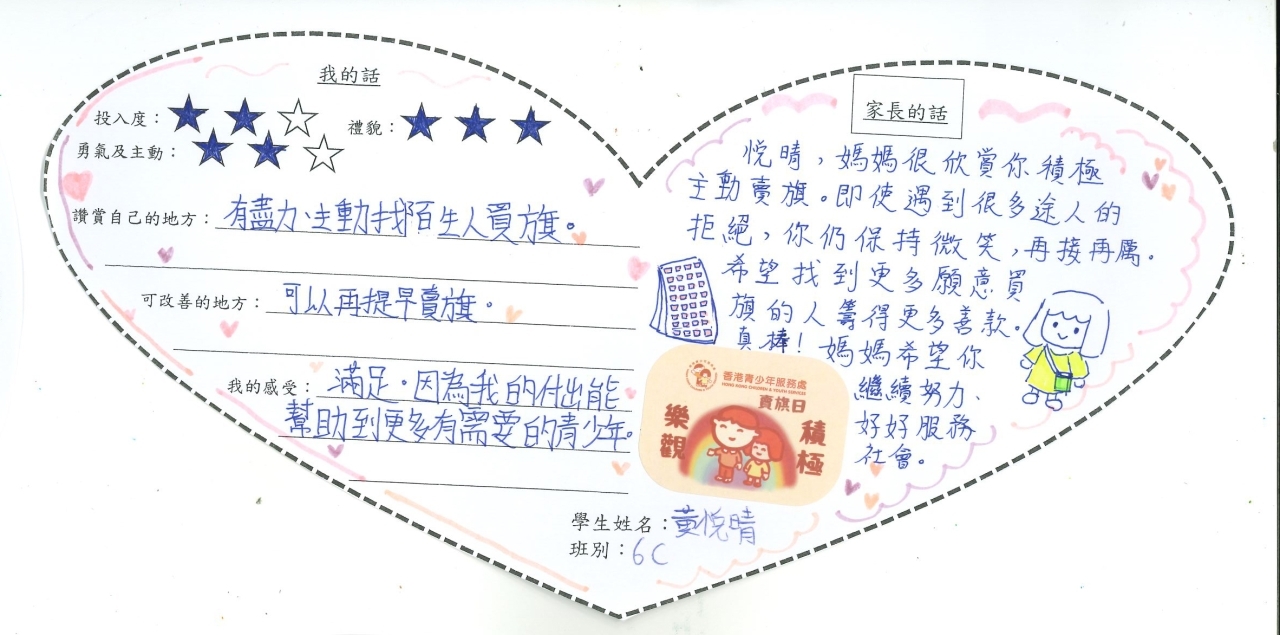 我的話
投入度：★★☆ 禮貌：★★★
勇氣及主動：★★☆
讚賞自己的地方：有盡力、主動找陌生人買旗。
可改善的地方：可以再提早賣旗。
我的感受：滿足。因為我的付出能
幫助到更多有需要的青少年。
家長的話
悅晴，媽媽很欣賞你積極
主動賣旗。即使遇到很多途人的
拒絕，你仍保持微笑，再接再厲。
希望找到更多願意買
旗的人籌得更多善款。
真棒！媽媽希望你
繼續努力、
好好服務
社會。
香港青少年服務處
HONG KONG CHILDREN & YOUTH SERVICES
賣旗日
樂觀
積極
學生姓名：黃悅晴
班別：6C